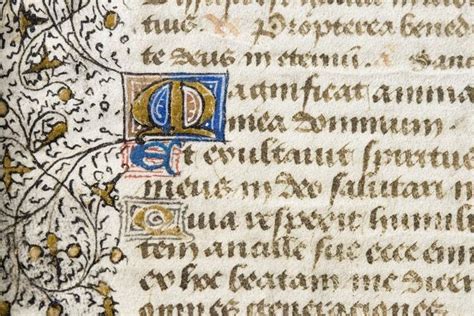 tius Propterea bened
te deus in eternū Sanc
Magnificat anima
mea dominum
Et exultauit spiritus
meus in deo salutari m
Quia respexit humili
tem ancille sue ecce eni
ex hoc beatam me dicen
omnes generationes